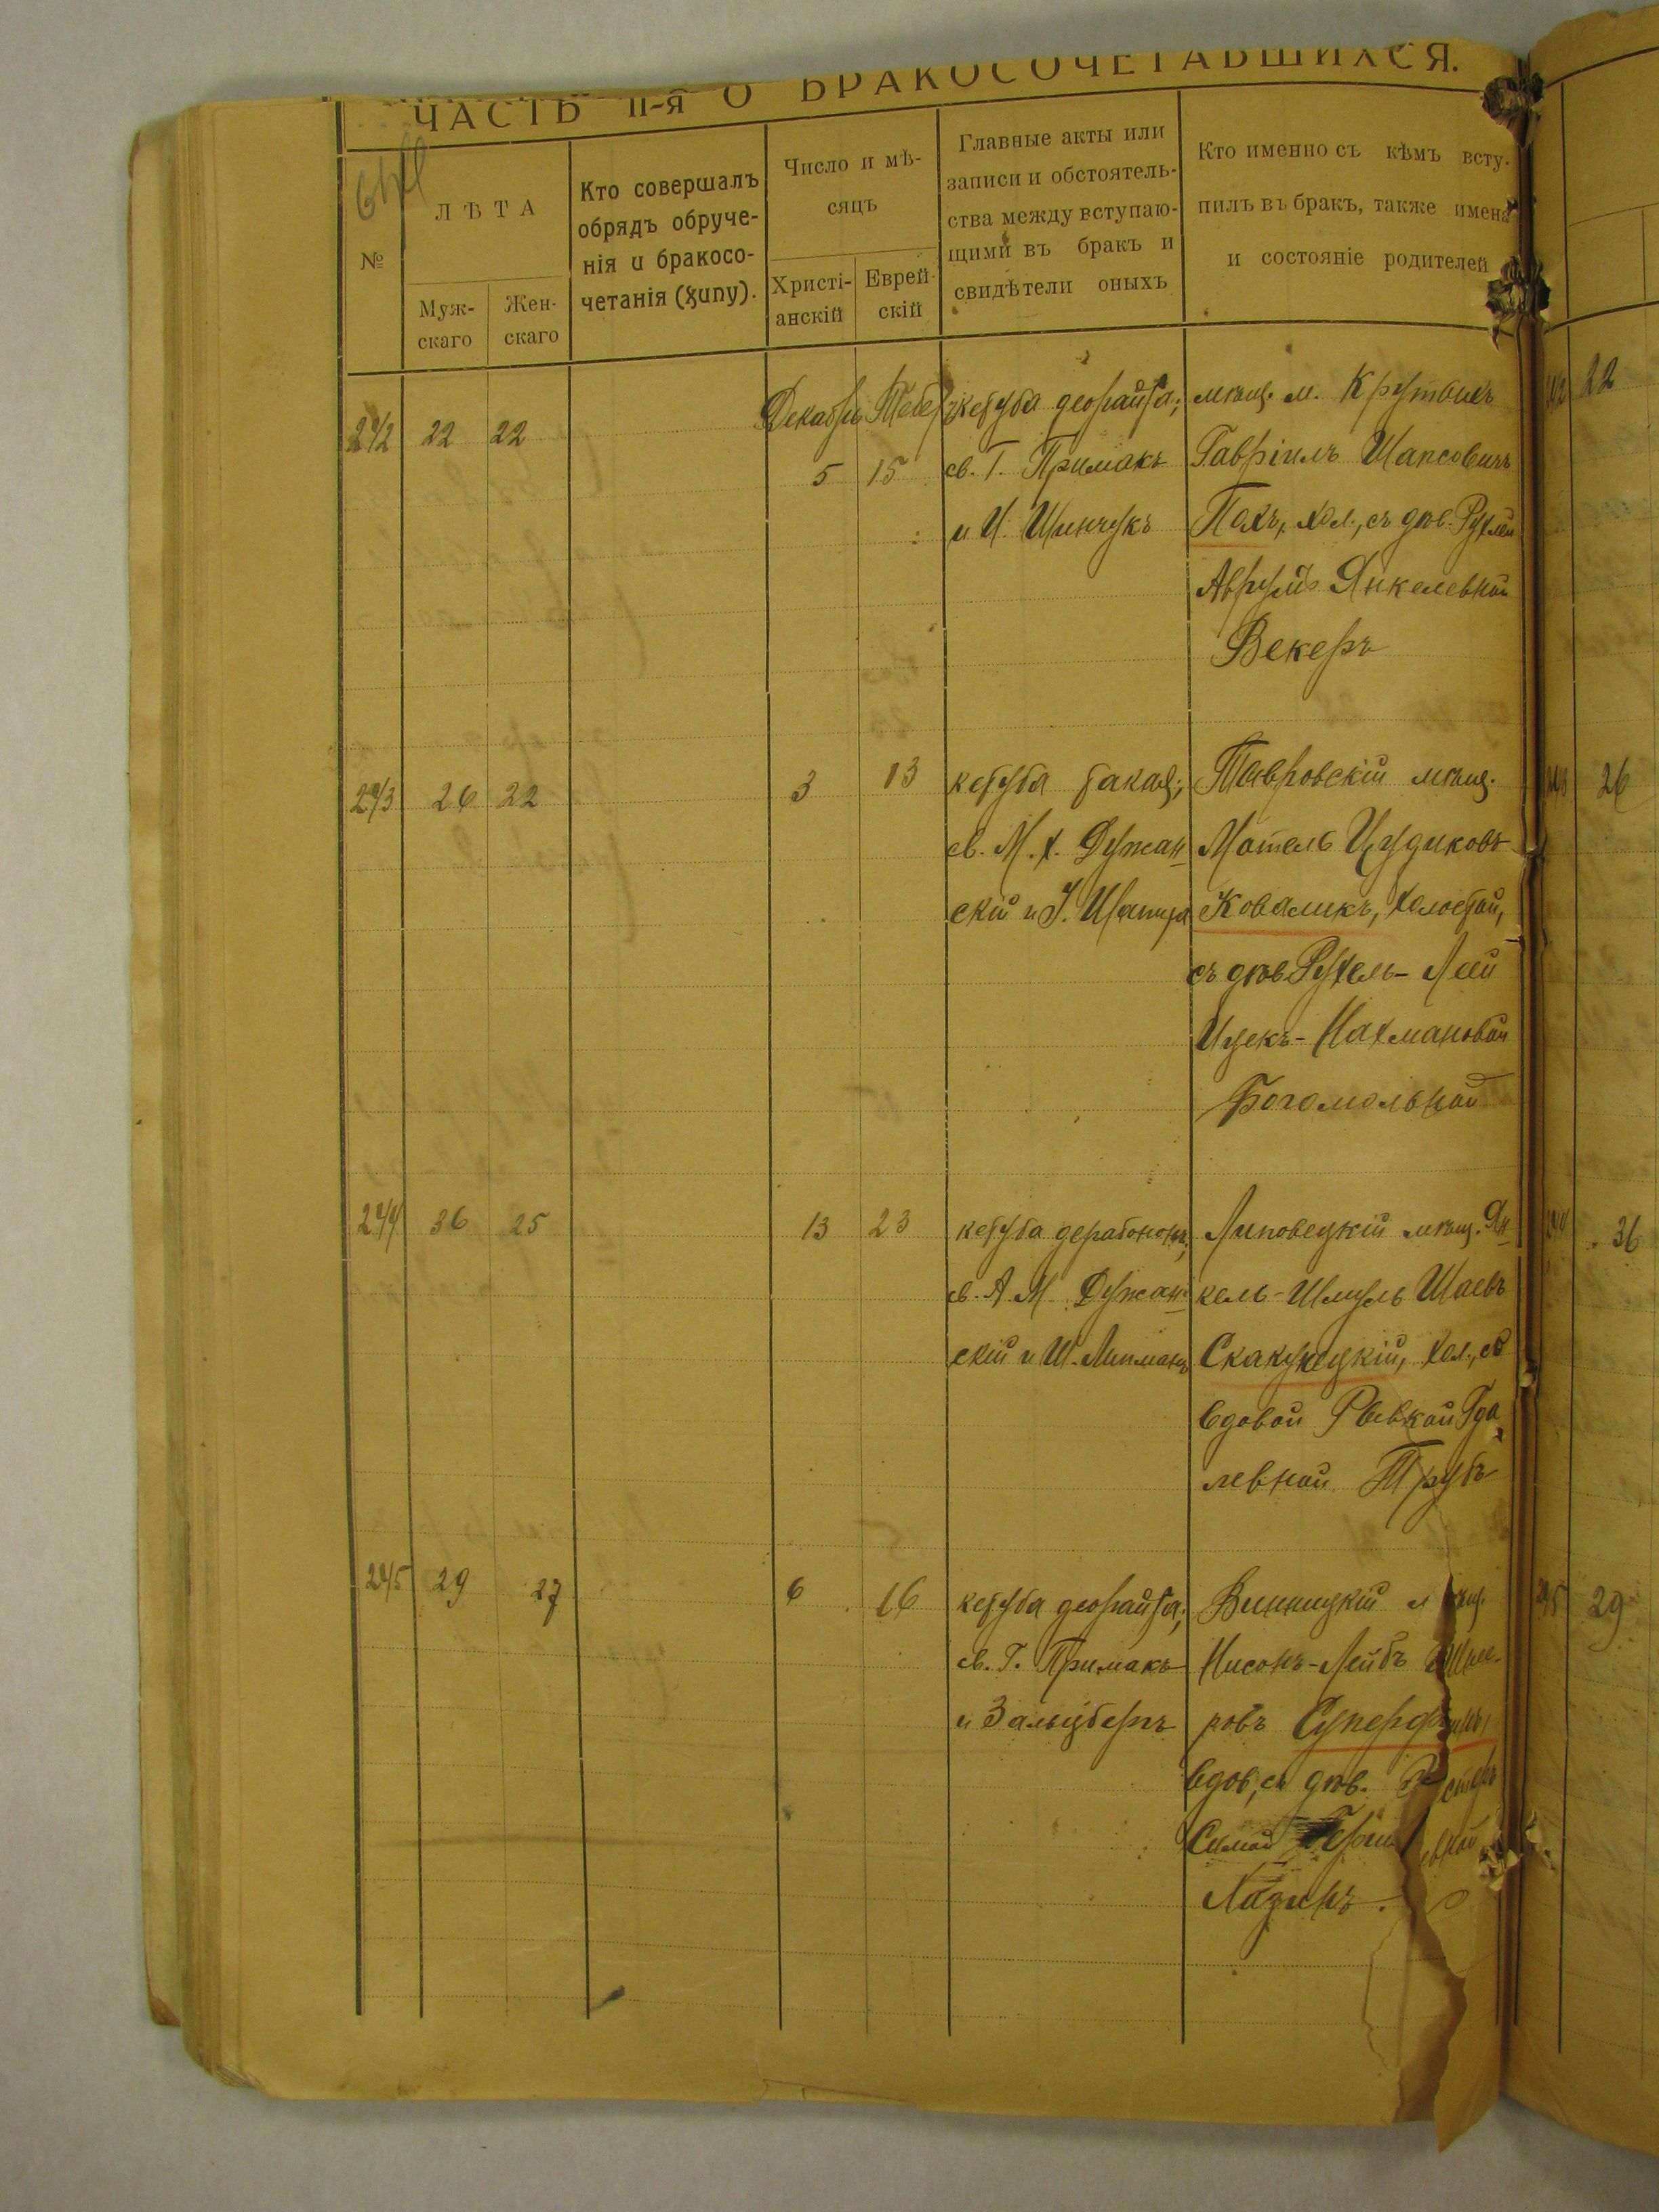 ЧАСТЬ II-я О БРАКОСОЧЕТАВШИХСЯ.
№
ЛѢТА
Муж-
скаго
Жен-
скаго
Кто совершалъ
обрядъ обруче-
нія и бракосо-
четанія (хупу).
Число и мѣ-
сяцъ
Христі-
анскій
Еврей-
скій
Главные акты или
записи и обстоятель-
ства между вступаю-
щими въ бракъ и
свидѣтели оныхъ
Кто именно съ кѣмъ всту-
пилъ въ бракъ, также имена
и состояніе родителей
242 22 22
Декабрь Тебет
5 15
кетуба деорайта;
св. Г. Примакъ
и И. Шинчукъ
мѣщ. м. Крутыхъ
Гавріилъ Шапсовичъ
Пахъ, хол., съ дѣв. Рухлей
Аврумъ Янкелевной
Векеръ
243 26 22
3 13
кетуба такая;
св. М. Х. Дужан-
скій и І. Шапира
Тывровскій мѣщ.
Мотель Цудиковъ
Коваликъ, холостой,
съ дѣв Рухель-Леей
Ицекъ-Нахмановой
Богомольной
244 36 25
13 23
кетуба дерабононъ;
св. А. М. Дужан-
скій и Ш. Липманъ
Липовецкій мѣщ. Ян-
кель-Шмуль Шаевъ
Скакунецкій, хол., съ
вдовой Ривкой Гда-
левной Трубъ
245 29 27
6 16
кетуба деорайта;
св. Г. Примакъ
и Зальцберъ
Винницкій мѣщ.
Нисонъ-Лейбъ Шме-
ровъ Суперфинъ,
вдов, съ дѣв. Эстеръ
Симой Гершевной
Лазинъ.
242 22
243 26
244 36
245 29